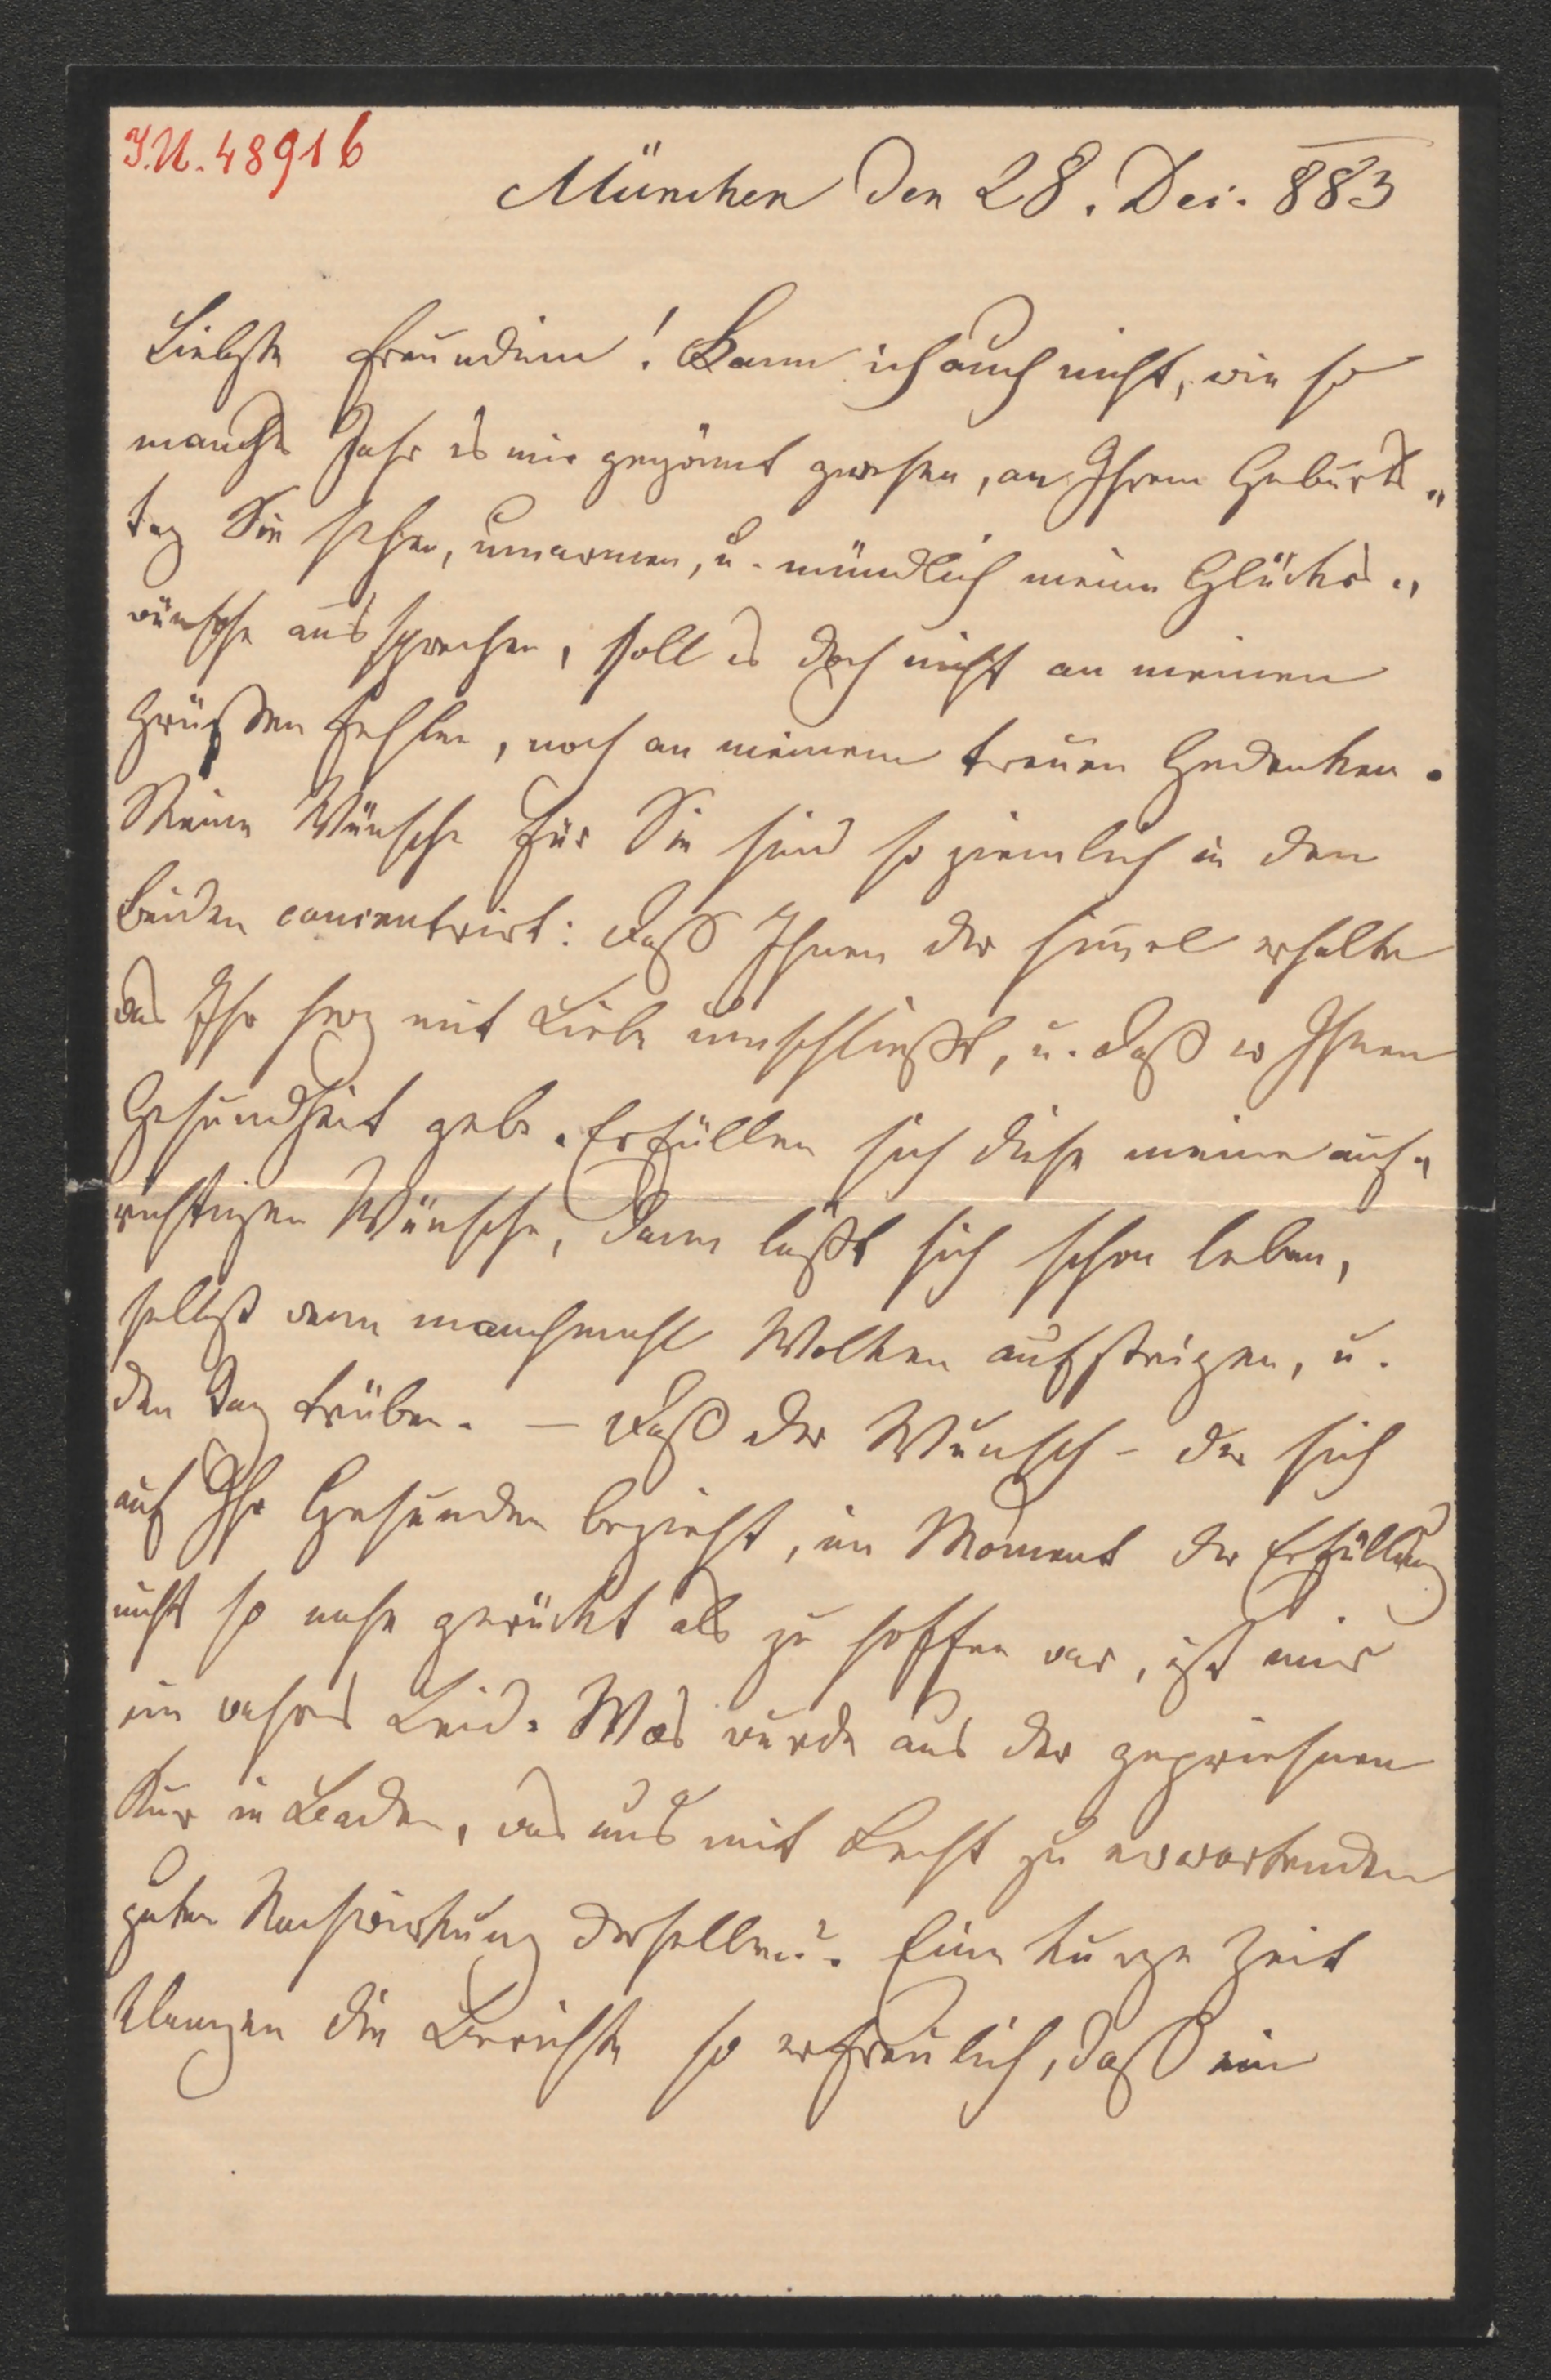 I.N. 48916
München den 28. Dei. 883
Liebste Freundinn! Kann ich auch nicht, wie so
manches Jahr es mir gegönnt gewesen, an Ihrem Geburts„
tag Sie sehen, umarmen, u. mündlich meine Glücks„
wünsche aussprechen, soll es doch nicht an meinen
Grüßen fehlen, noch an meinem treuen Gedenken.
Meine Wünsche für Sie sind so ziemlich in den
beiden concentrirt: daß Ihnen der Himel erhalte
was Ihr Herz mit Liebe umschließt, u. daß er Ihnen
Gesundheit gebe. Erfüllen sich diese meine auf„
richtigen Wünsche, dann läßt sich schon leben,
selbst wenn manchmahl Wolken aufsteigen, u.
den Tag trüben. – Daß der Wunsch – der sich
auf Ihr Gesunden bezieht, im Moment der Erfüllung
nicht so nahe gerückt als zu hoffen war, ist mir
ein wahres Leid. Was wurde aus der gepriesnen
Kur in Baden, was aus mit Recht zu erwartenden
guten Nachwirkung derselben?. Eine kurze Zeit
klangen die Berichte so erfreulich, daß ein